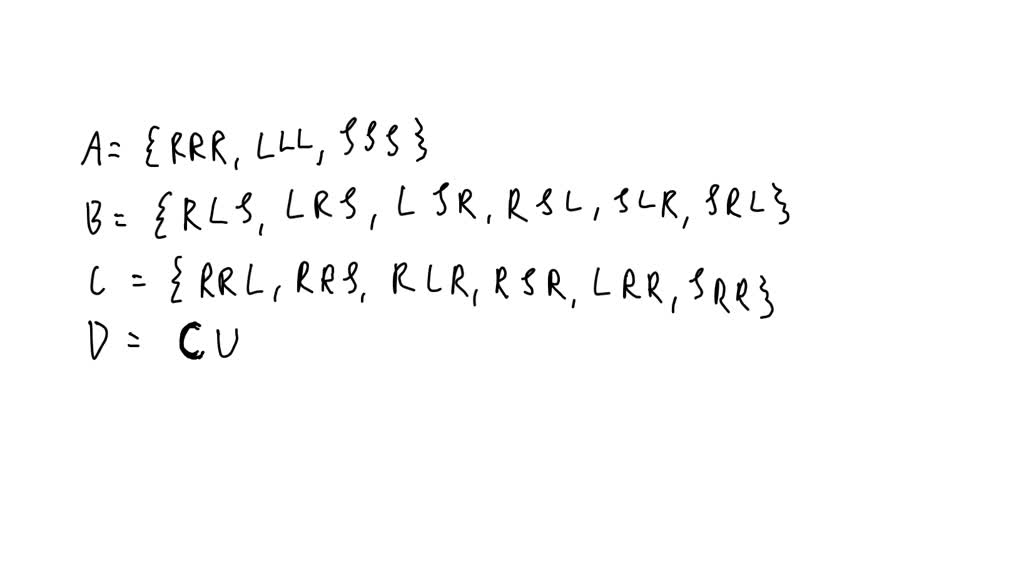 A = {RRR, LLL, SSS}
B = {RLS, LRS, LSR, RSL, SLR, SRL}
C = {RRL, RRS, RLR, RSR, LRR, SRR}
D = C ∪